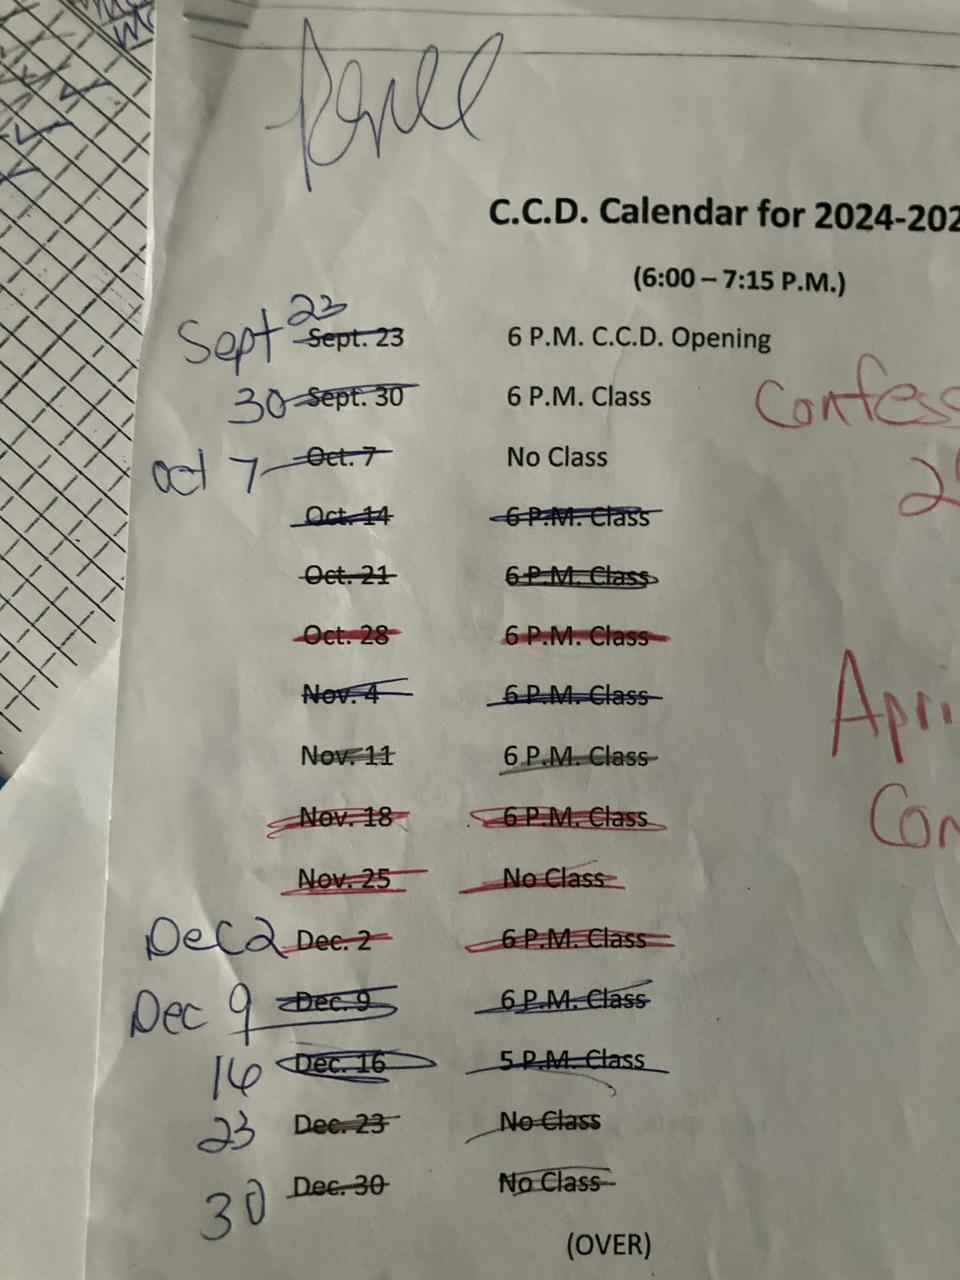 C.C.D. Calendar for 2024-202
(6:00 – 7:15 P.M.)
Sept 23 Sept. 23 6 P.M. C.C.D. Opening
30 Sept. 30 6 P.M. Class
Confess
Oct 7 Oct. 7 No Class
2
Oct. 14 6 P.M. Class
Oct. 21 6 P.M. Class
Oct. 28 6 P.M. Class
Nov. 4 6 P.M. Class
Apri
Nov. 11 6 P.M. Class
Nov. 18 6 P.M. Class
Con
Nov. 25 No Class
Dec 2 Dec. 2 6 P.M. Class
Dec 9 Dec. 9 6 P.M. Class
16 Dec. 16 5 P.M. Class
23 Dec. 23 No Class
30 Dec. 30 No Class
(OVER)